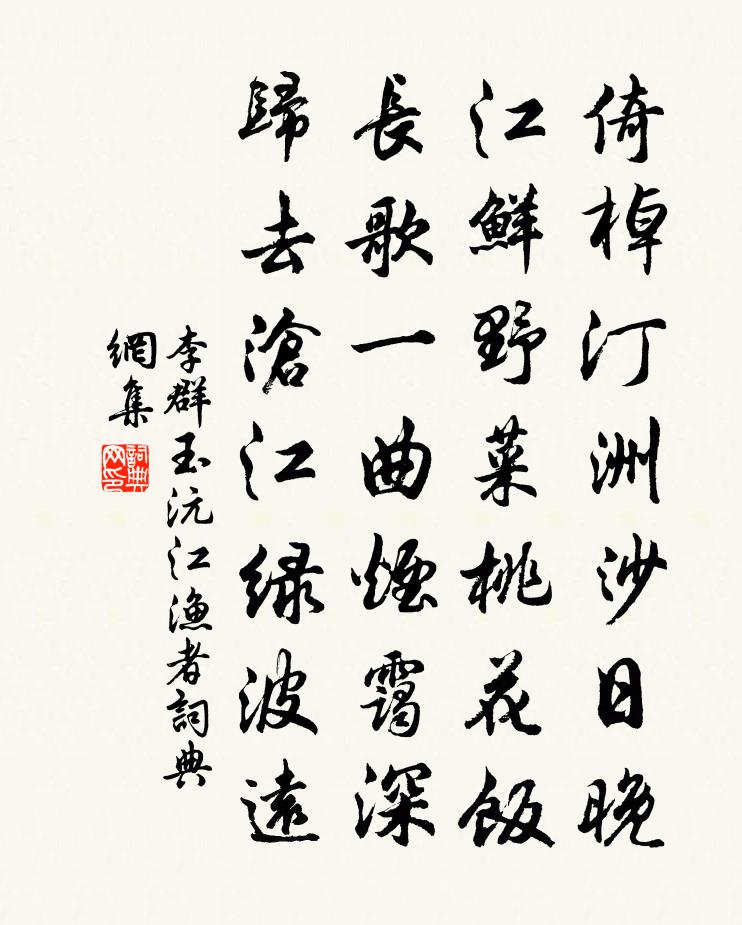 倚棹汀洲沙日晚
江鮮野菜桃花飯
長歌一曲煙靄深
歸去滄江綠波遠
李群玉沅江漁者詞典
網集
詞典
网印